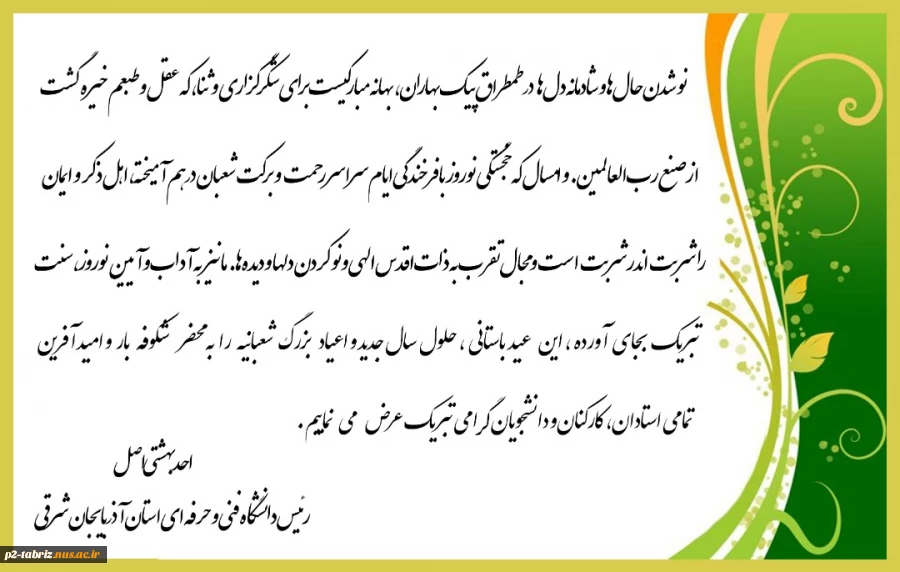 نوشدن حال ها و شادمانه دل ها در طمطراق پیک بهاران، بهانه مبارکیست برای شکرگزاری و ثنا، که عقل و طبعم خیره گشت
از صنع رب العالمین. و امسال که خجستگی نوروز با فرخندگی ایام سراسر رحمت و برکت شعبان در هم آمیخته، اهل ذکر و ایمان
را شربت اندر شربت است و مجال تقرب به ذات اقدس الهی و نو کردن دلها و دیده ها. ما نیز به آداب و آیین نوروز، سنت
تبریک بجای آورده ، این عید باستانی ، حلول سال جدید و اعیاد بزرگ شعبانیه را به محضر شکوفه بار و امید آفرین
تمامی استادان، کارکنان و دانشجویان گرامی تبریک عرض می نماییم .
احد بهشتی اصل
رئیس دانشگاه فنی و حرفه ای استان آذربایجان شرقی
p2-tabriz.nus.ac.ir